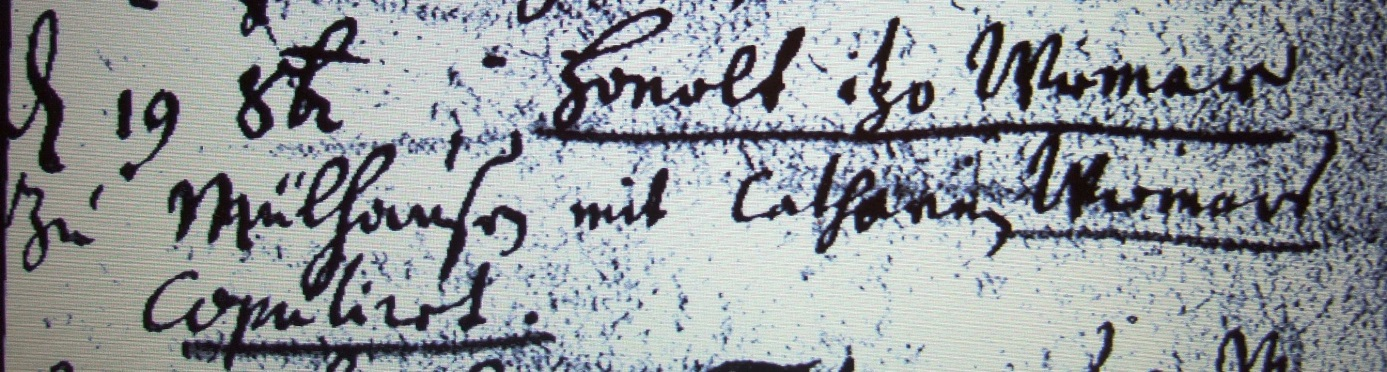 d 19 8br Honolt itzo Wismar
zu Mülhausen mit Catharin Wismar
Copulirt.